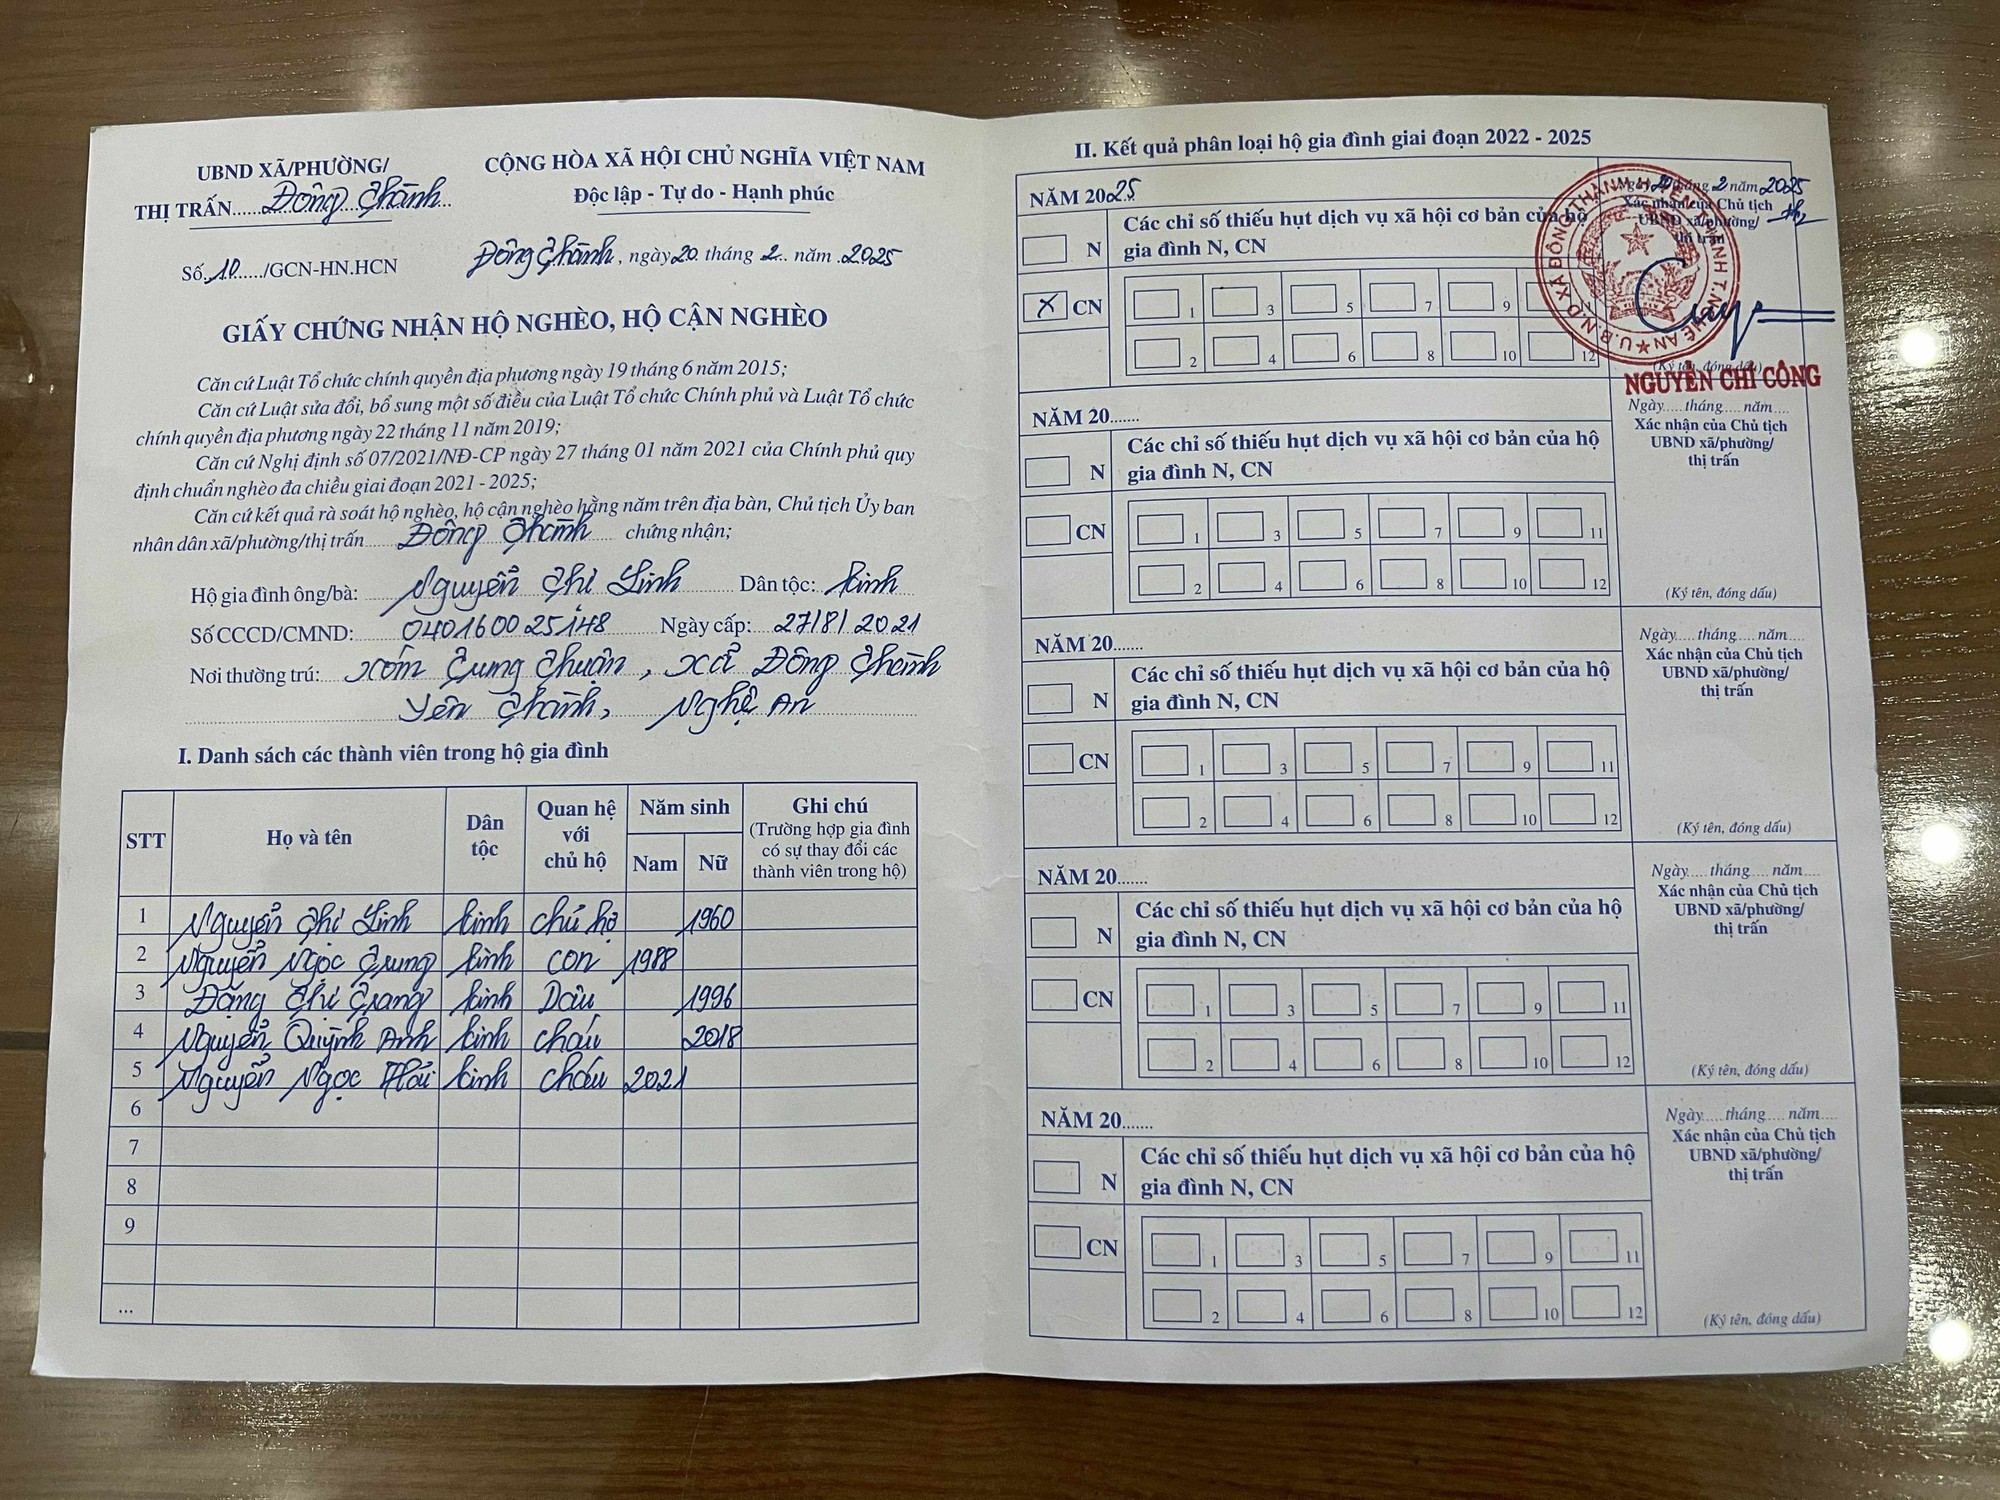 UBND XÃ/PHƯỜNG/
THỊ TRẤN Đông Thành
CỘNG HÒA XÃ HỘI CHỦ NGHĨA VIỆT NAM
Độc lập - Tự do - Hạnh phúc
Số: 10 /GCN-HN.HCN
Đông Thành, ngày 20 tháng 2 năm 2025
GIẤY CHỨNG NHẬN HỘ NGHÈO, HỘ CẬN NGHÈO
Căn cứ Luật Tổ chức chính quyền địa phương ngày 19 tháng 6 năm 2015;
Căn cứ Luật sửa đổi, bổ sung một số điều của Luật Tổ chức Chính phủ và Luật Tổ chức
chính quyền địa phương ngày 22 tháng 11 năm 2019;
Căn cứ Nghị định số 07/2021/NĐ-CP ngày 27 tháng 01 năm 2021 của Chính phủ quy
định chuẩn nghèo đa chiều giai đoạn 2021 - 2025;
Căn cứ kết quả rà soát hộ nghèo, hộ cận nghèo hằng năm trên địa bàn, Chủ tịch Ủy ban
nhân dân xã/phường/thị trấn Đông Thành chứng nhận;
Hộ gia đình ông/bà: Nguyễn Thị Linh Dân tộc: Kinh
Số CCCD/CMND: 040160025148 Ngày cấp: 27/8/2021
Nơi thường trú: Xóm Trung Thuận, xã Đông Thành
Yên Thành, Nghệ An
I. Danh sách các thành viên trong hộ gia đình
STT Họ và tên Dân tộc Quan hệ với chủ hộ Năm sinh Nam Nữ Ghi chú (Trường hợp gia đình có sự thay đổi các thành viên trong hộ)
1 Nguyễn Thị Linh Kinh chủ hộ 1960
2 Nguyễn Ngọc Trung Kinh con 1988
3 Đặng Thị Trang Kinh Dâu 1996
4 Nguyễn Quỳnh Anh Kinh cháu 2018
5 Nguyễn Ngọc Hải Kinh cháu 2021
6
7
8
9
...
II. Kết quả phân loại hộ gia đình giai đoạn 2022 - 2025
NĂM 2025
N
X CN
Các chỉ số thiếu hụt dịch vụ xã hội cơ bản của hộ
gia đình N, CN
1 3 5 7 9 11
2 4 6 8 10 12
Ngày 20 tháng 2 năm 2025
Xác nhận của Chủ tịch
UBND xã/phường/
thị trấn
U.B.N.D XÃ ĐÔNG THÀNH H. YÊN THÀNH T. NGHỆ AN
(Ký tên, đóng dấu)
NGUYỄN CHÍ CÔNG
NĂM 20.......
N
CN
Các chỉ số thiếu hụt dịch vụ xã hội cơ bản của hộ
gia đình N, CN
1 3 5 7 9 11
2 4 6 8 10 12
Ngày..... tháng.... năm....
Xác nhận của Chủ tịch
UBND xã/phường/
thị trấn
(Ký tên, đóng dấu)
NĂM 20.......
N
CN
Các chỉ số thiếu hụt dịch vụ xã hội cơ bản của hộ
gia đình N, CN
1 3 5 7 9 11
2 4 6 8 10 12
Ngày..... tháng.... năm....
Xác nhận của Chủ tịch
UBND xã/phường/
thị trấn
(Ký tên, đóng dấu)
NĂM 20.......
N
CN
Các chỉ số thiếu hụt dịch vụ xã hội cơ bản của hộ
gia đình N, CN
1 3 5 7 9 11
2 4 6 8 10 12
Ngày..... tháng.... năm....
Xác nhận của Chủ tịch
UBND xã/phường/
thị trấn
(Ký tên, đóng dấu)
NĂM 20.......
N
CN
Các chỉ số thiếu hụt dịch vụ xã hội cơ bản của hộ
gia đình N, CN
1 3 5 7 9 11
2 4 6 8 10 12
Ngày..... tháng.... năm....
Xác nhận của Chủ tịch
UBND xã/phường/
thị trấn
(Ký tên, đóng dấu)